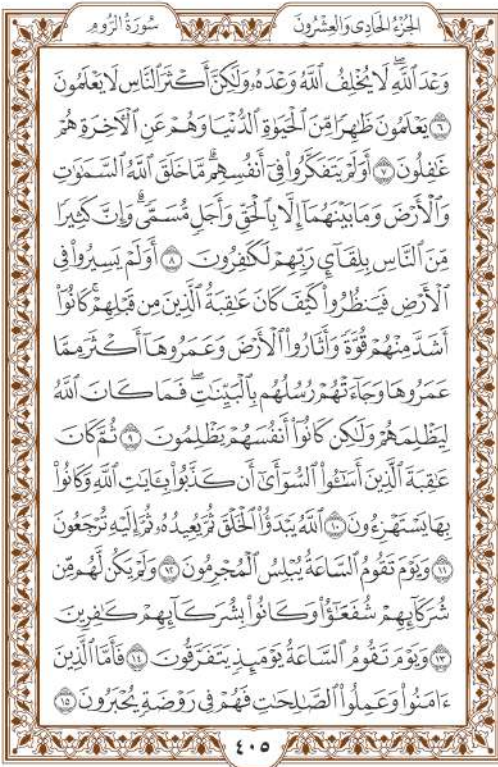 الجُزْءُ الحَادِى وَالعِشْرُونَ
سُورَةُ الرُّومِ
وَعْدَ ٱللَّهِۖ لَا يُخْلِفُ ٱللَّهُ وَعْدَهُۥ وَلَٰكِنَّ أَكْثَرَ ٱلنَّاسِ لَا يَعْلَمُونَ
٦ يَعْلَمُونَ ظَٰهِرًا مِّنَ ٱلْحَيَوٰةِ ٱلدُّنْيَا وَهُمْ عَنِ ٱلْأَخِرَةِ هُمْ
غَٰفِلُونَ ٧ أَوَلَمْ يَتَفَكَّرُوا۟ فِىٓ أَنفُسِهِمۗ مَّا خَلَقَ ٱللَّهُ ٱلسَّمَٰوَٰتِ
وَٱلْأَرْضَ وَمَا بَيْنَهُمَآ إِلَّا بِٱلْحَقِّ وَأَجَلٍ مُّسَمًّىۗ وَإِنَّ كَثِيرًا
مِّنَ ٱلنَّاسِ بِلِقَآئِ رَبِّهِمْ لَكَٰفِرُونَ ٨ أَوَلَمْ يَسِيرُوا۟ فِى
ٱلْأَرْضِ فَيَنظُرُوا۟ كَيْفَ كَانَ عَٰقِبَةُ ٱلَّذِينَ مِن قَبْلِهِمْۚ كَانُوٓا۟
أَشَدَّ مِنْهُمْ قُوَّةً وَأَثَارُوا۟ ٱلْأَرْضَ وَعَمَرُوهَآ أَكْثَرَ مِمَّا
عَمَرُوهَا وَجَآءَتْهُمْ رُسُلُهُم بِٱلْبَيِّنَٰتِۖ فَمَا كَانَ ٱللَّهُ
لِيَظْلِمَهُمْ وَلَٰكِن كَانُوٓا۟ أَنفُسَهُمْ يَظْلِمُونَ ٩ ثُمَّ كَانَ
عَٰقِبَةَ ٱلَّذِينَ أَسَٰٓـُٔوا۟ ٱلسُّوٓأَىٰٓ أَن كَذَّبُوا۟ بِـَٔايَٰتِ ٱللَّهِ وَكَانُوا۟
بِهَا يَسْتَهْزِءُونَ ١٠ ٱللَّهُ يَبْدَؤُا۟ ٱلْخَلْقَ ثُمَّ يُعِيدُهُۥ ثُمَّ إِلَيْهِ تُرْجَعُونَ
١١ وَيَوْمَ تَقُومُ ٱلسَّاعَةُ يُبْلِسُ ٱلْمُجْرِمُونَ ١٢ وَلَمْ يَكُن لَّهُم مِّن
شُرَكَآئِهِمْ شُفَعَٰٓؤُا۟ وَكَانُوا۟ بِشُرَكَآئِهِمْ كَٰفِرِينَ
١٣ وَيَوْمَ تَقُومُ ٱلسَّاعَةُ يَوْمَئِذٍ يَتَفَرَّقُونَ ١٤ فَأَمَّا ٱلَّذِينَ
ءَامَنُوا۟ وَعَمِلُوا۟ ٱلصَّٰلِحَٰتِ فَهُمْ فِى رَوْضَةٍ يُحْبَرُونَ ١٥
٤٠٥